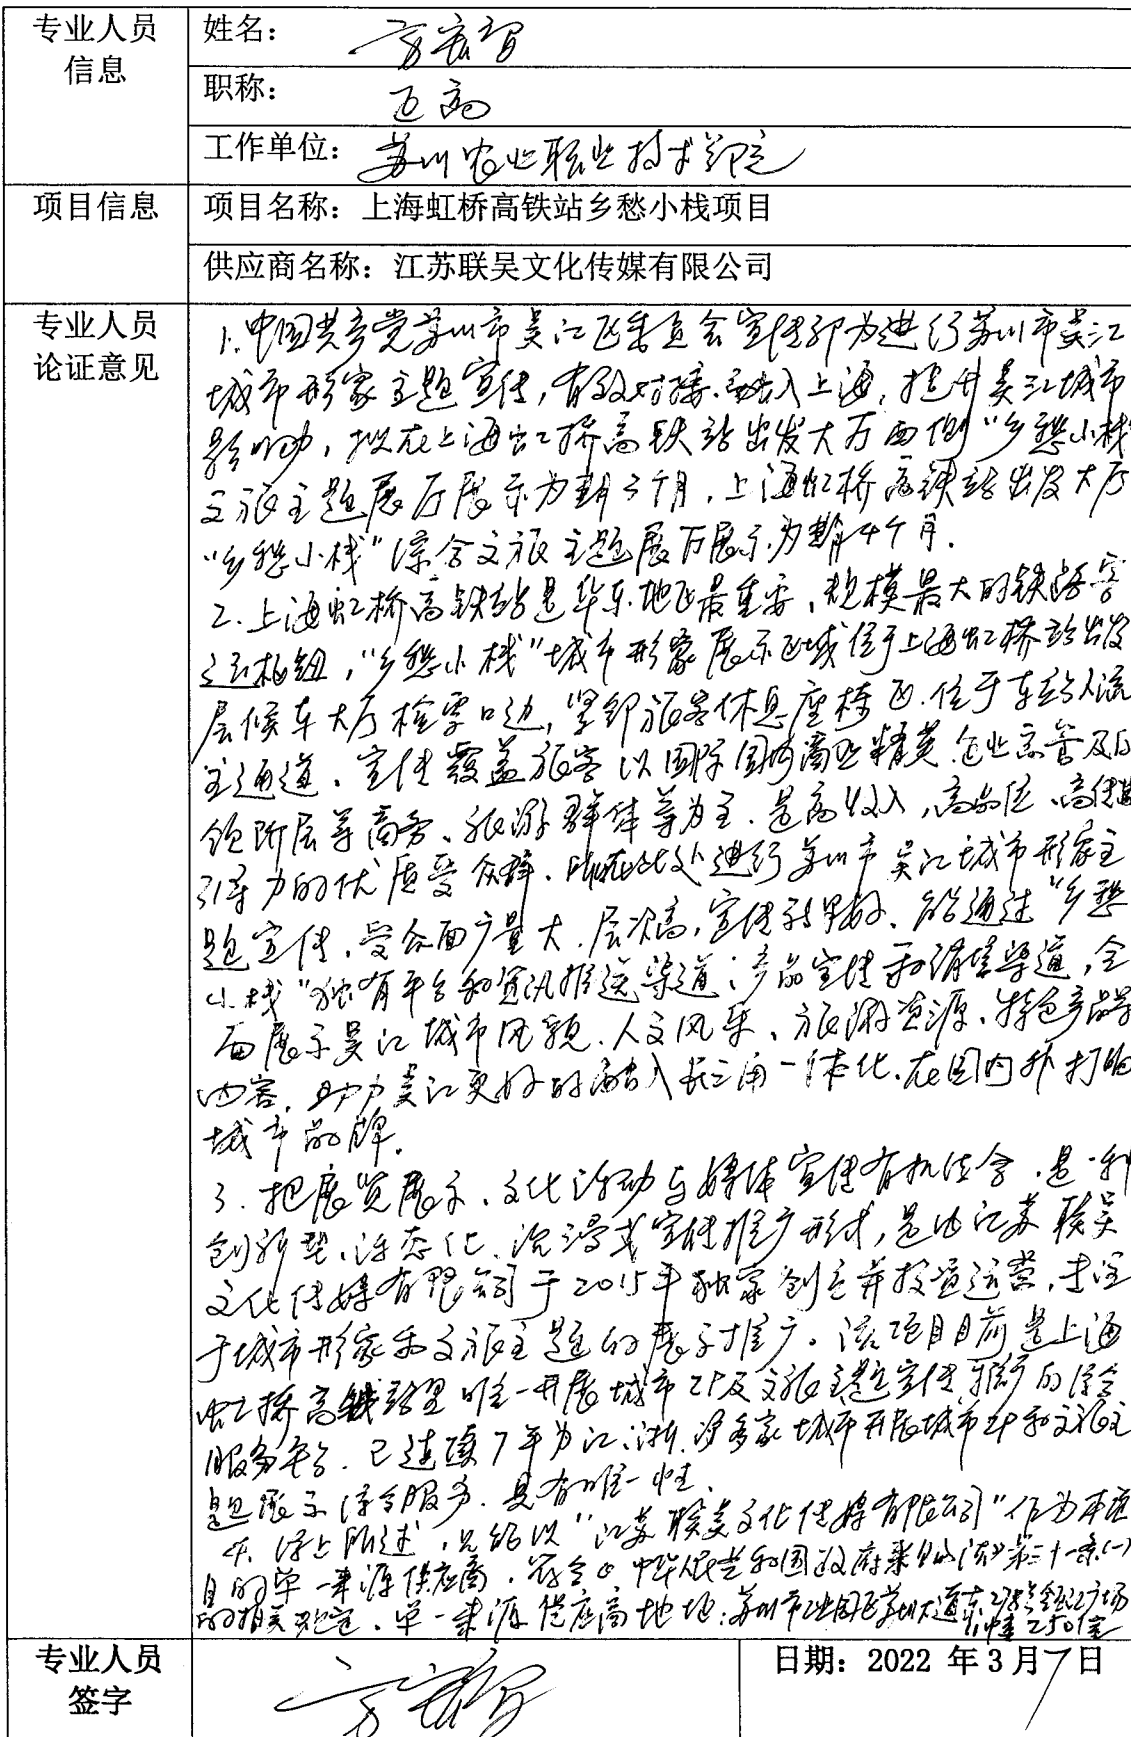 专业人员
信息
姓名：
职称：正高
工作单位：苏州农业职业技术学院
项目信息
项目名称：上海虹桥高铁站乡愁小栈项目
供应商名称：江苏联吴文化传媒有限公司
专业人员
论证意见
1.中国共产党苏州市吴江区委员会宣传部为进行苏州市吴江
城市形象主题宣传，有效对接、融入上海，提升吴江城市
影响力，拟在上海虹桥高铁站出发大厅西侧"乡愁小栈"
文旅主题展厅展示为期3个月，上海虹桥高铁站出发大厅
"乡愁小栈"综合文旅主题展厅展示为期4个月.
2.上海虹桥高铁站是华东地区最重要、规模最大的铁路客
运枢纽，"乡愁小栈"城市形象展示区域位于上海虹桥站出发
层候车大厅检票口边，紧邻旅客休息座椅区.位于车站人流
主通道、宣传覆盖旅客以国际国内商业精英、企业高管及白
领阶层等商务、旅游群体等为主.是高收入，高品位、高传播
引导力的优质受众群.所在此处进行苏州市吴江城市形象主
题宣传，受众面广量大.层次高，宣传效果好、能通过"乡愁
小栈"独有平台和资讯推送渠道；产品宣传和销售渠道，全
面展示吴江城市风貌、人文风采、旅游资源、特色产品等
内容，助力吴江更好的融入长三角一体化.在国内外打响
城市品牌.
3.把展览展示、文化活动与媒体宣传有机结合.是一种
创新型、活态化、沉浸式宣传推广形式，是由江苏联吴
文化传媒有限公司于2015年独家创立并投资运营，专注
于城市形象和文旅主题的展示推广。该项目目前是上海
虹桥高铁站里唯一开展城市IP及文旅主题宣传推广的综合
服务平台.已连续7年为江、浙、沪多家城市开展城市IP和文旅主
题展示综合服务.具有唯一性.
4.综上所述，只能以"江苏联吴文化传媒有限公司"作为本项
目的单一来源供应商，符合《中华人民共和国政府采购法》第三十一条(一)
的相关规定.单一来源供应商地址：苏州市工业园区苏州大道东278号
专业人员
签字
日期：2022 年3月7日